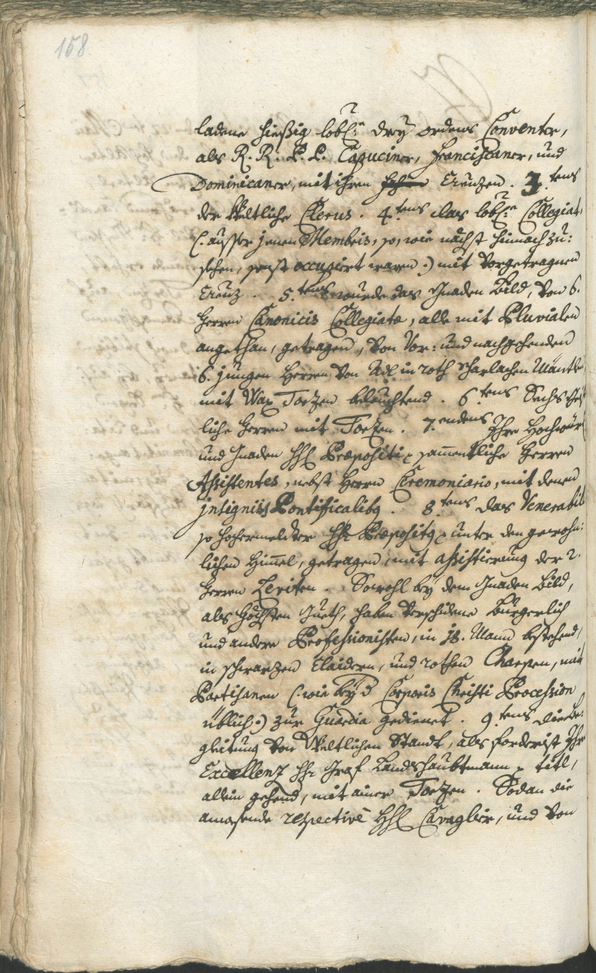 158
ladene hießig lobl: drey ordens Conventer,
als R. R. P. P. Capuciner, Franciscaner, und
Dominicaner, mit ihren Creuzen. 3.tens
der Weltliche Clerus. 4.tens das lobl: Collegiat,
(: ausser jenen Membris, so, wie nächst hinnach zu:
sehen, sonst occupirt waren:) mit Vorgetragnen
Creuz. 5.tens wurde das Gnaden Bild, Von 6.
Herren Canonicis Collegiatæ, alle mit Pluvialen
angethan, getragen, Von Vor: und nachgehenden
6. jungen Herren Von Adl in roth scharlachen Mäntln
mit Wax Torzen beleuchtend. 6.tens Sechs
liche Herren mit Torzen. 7.endens Ihre Hochwürd
und Gnaden HH. Præpositi sammentliche Herren
Assistentes, nebst Herrn Ceremoniario, mit denen
insigniis Pontificalibq. 8.tens das Venerabile
so hochermelter Hr. Præpositq unter den gewohn:
lichen Himmel, getragen, mit assistierung der 2.
Herren Leviten. Sowohl bey dem Gnaden Bild,
als höchsten Gueth, haben Verschidene Burgerlich
und andere Professionisten, in 18. Mann bestehend,
in schwarzen Claidern, und rothen Charpen, mit
Partisanen (: wie bey d Corporis Christi Procession
üblich:) zur Guardia gedienet. 9.tens die Be:
gleitung Von Weltlichen Standt, als forderist Ihre
Excellenz Hr. Graf Landshaubtmann titl,
allein gehend, mit einer Torzen. Sodan die
anwesende respectivè HH. Cavaglier, und Von